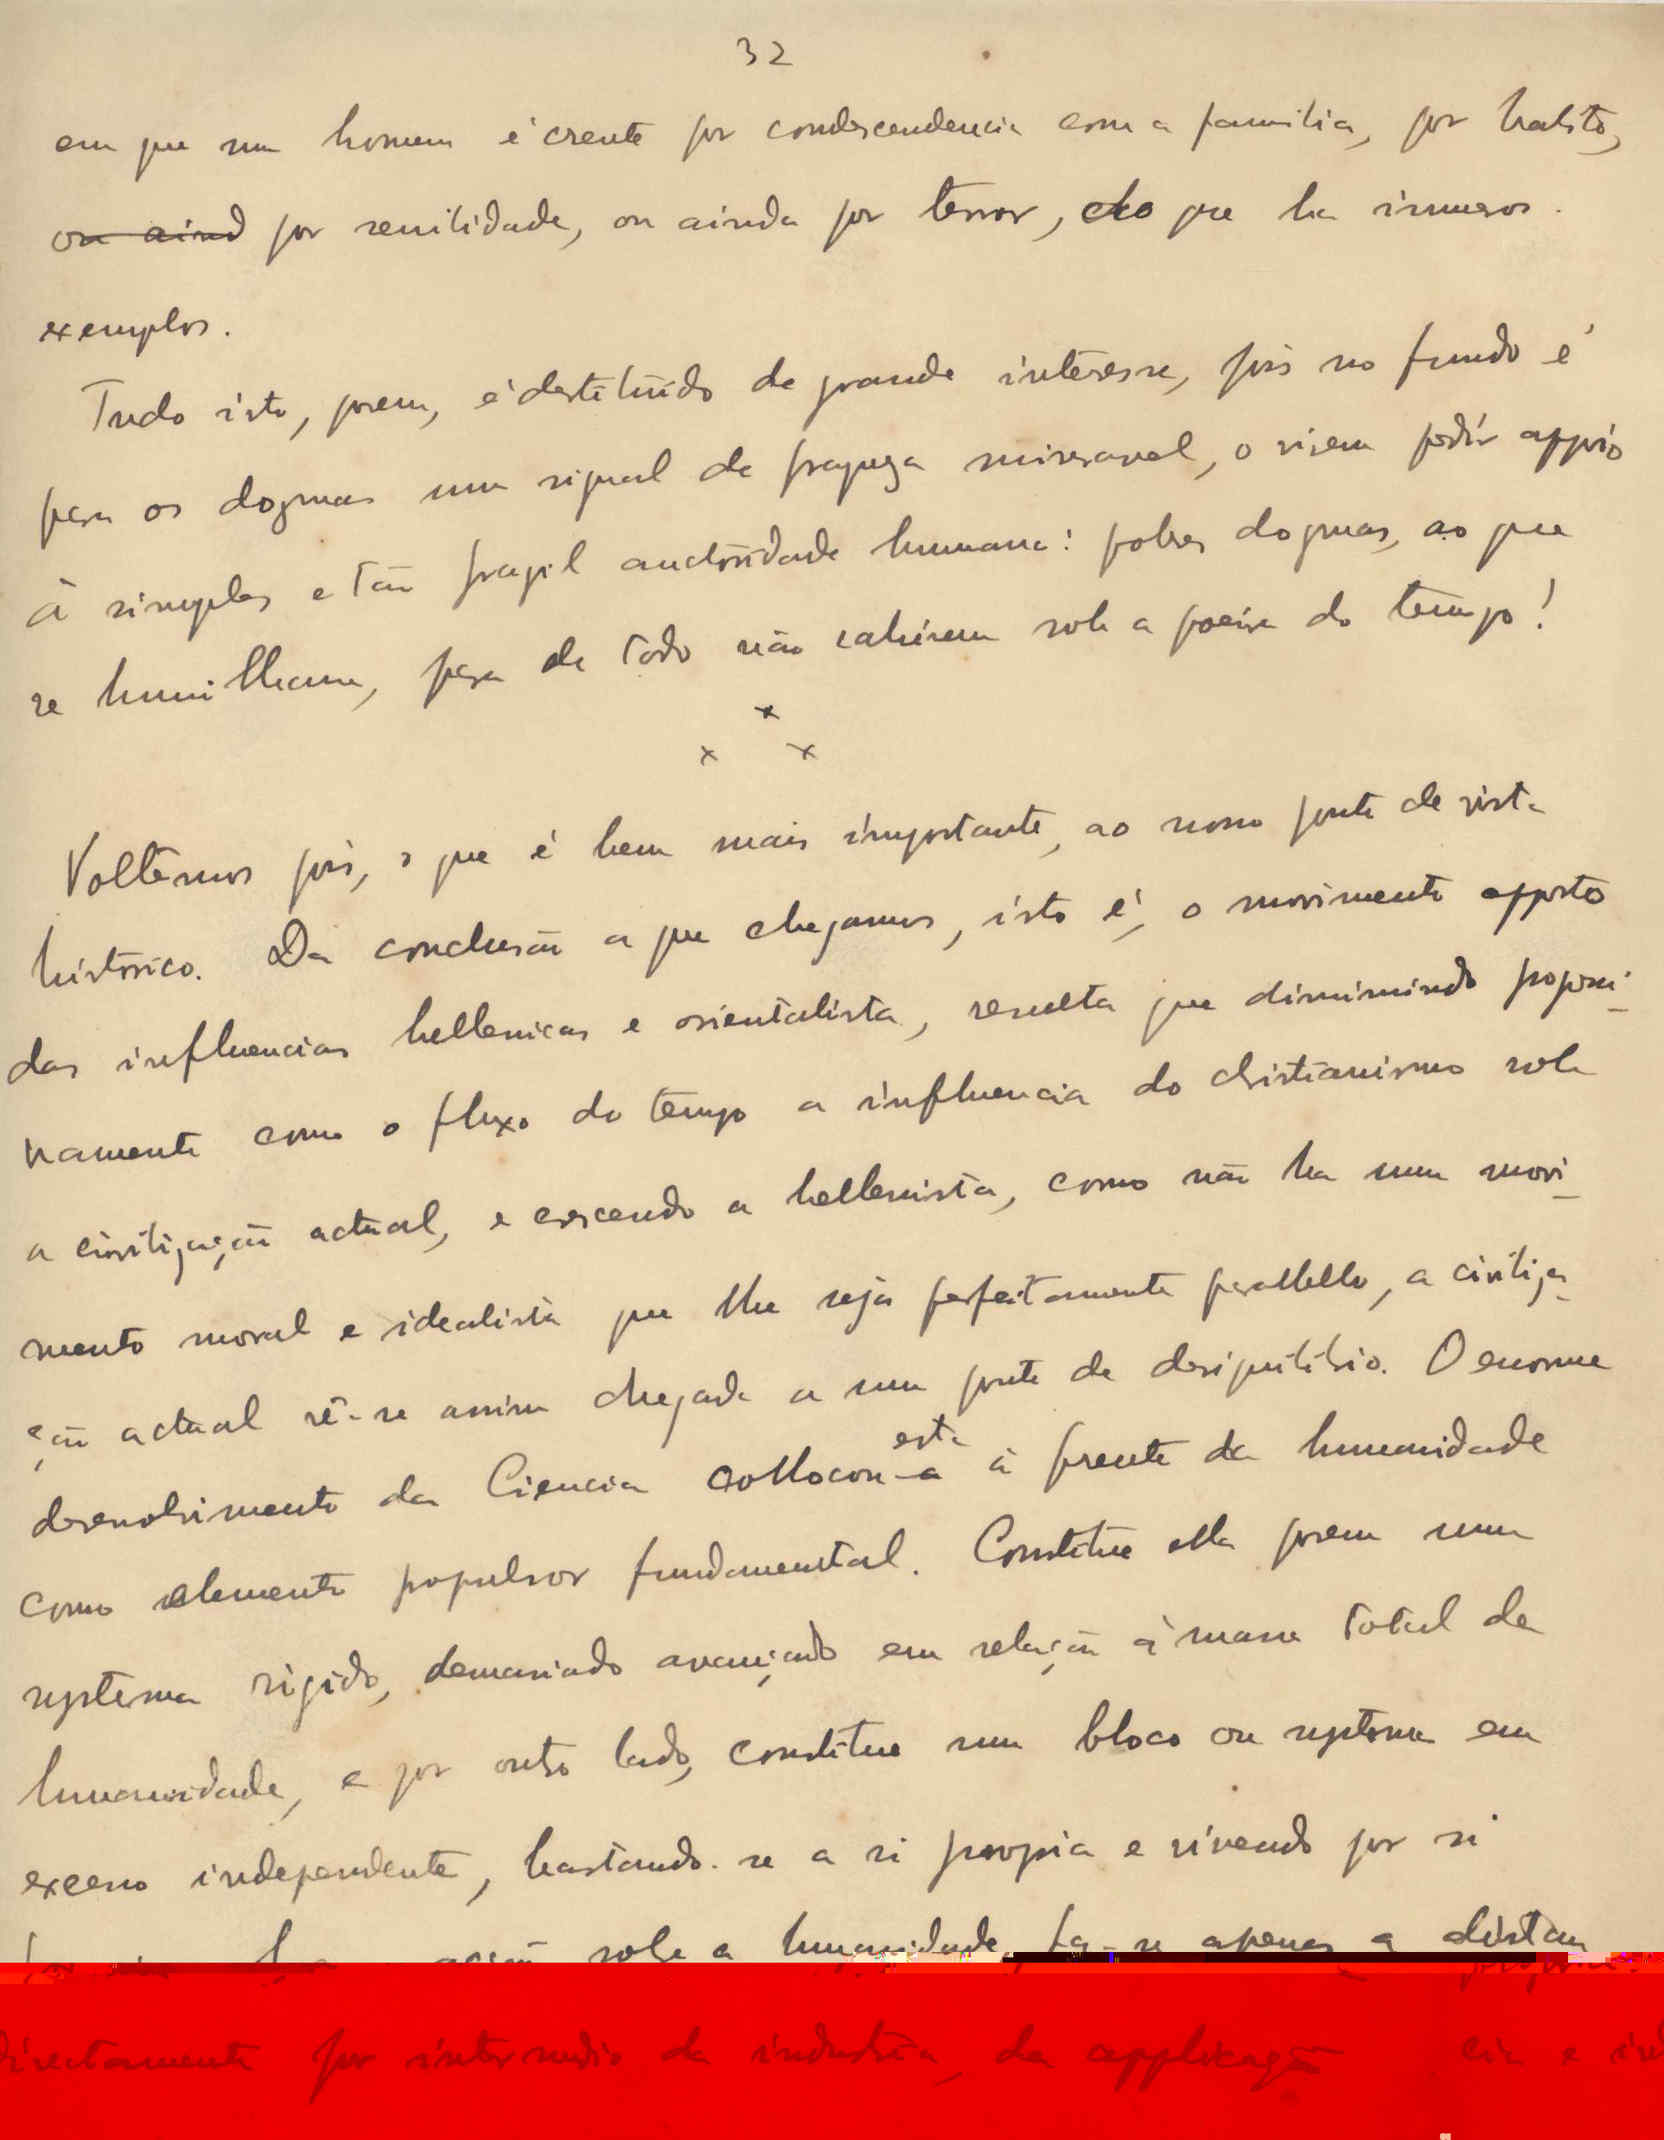 32
em que um homem é crente por condescendencia com a familia, por habito,
ou aind por senilidade, ou ainda por terror, do que ha inumeros
exemplos.
Tudo isto, porem, é destituido de grande interesse, pois no fundo é
para os dogmas um signal de fraqueza miseravel, o virem pedir appoio
á simples e tão fragil auctoridade humana: pobres dogmas, ao que
se humilham, para de todo não cahirem sob a poeira do tempo!
x
x x
Voltemos pois, o que é bem mais importante, ao nosso ponto de vista
historico. Da conclusão a que chegamos, isto é, o movimento opposto
das influencias hellenicas e orientalista, resulta que diminuindo progressi-
vamente com o fluxo do tempo a influencia do christianismo sob
a civilização actual, e crescendo a hellenista, como não ha um movi-
mento moral e idealista que lhe seja perfeitamente parallelo, a civiliza-
ção actual vê-se assim chegada a um ponto de desiquilibrio. O enorme
desenvolvimento da Ciencia collocou-a esta á frente da humanidade
como elemento propulsor fundamental. Constitue ella porem um
systema rigido, demasiado avançado em relação á massa total da
humanidade, e por outro lado, constitue um bloco ou systema em
excesso independente, bastando-se a si propria e vivendo por si
acção sob a humanidade faz-se apenas a distan
directamente por intermedio da industria, da applicação cia e ind